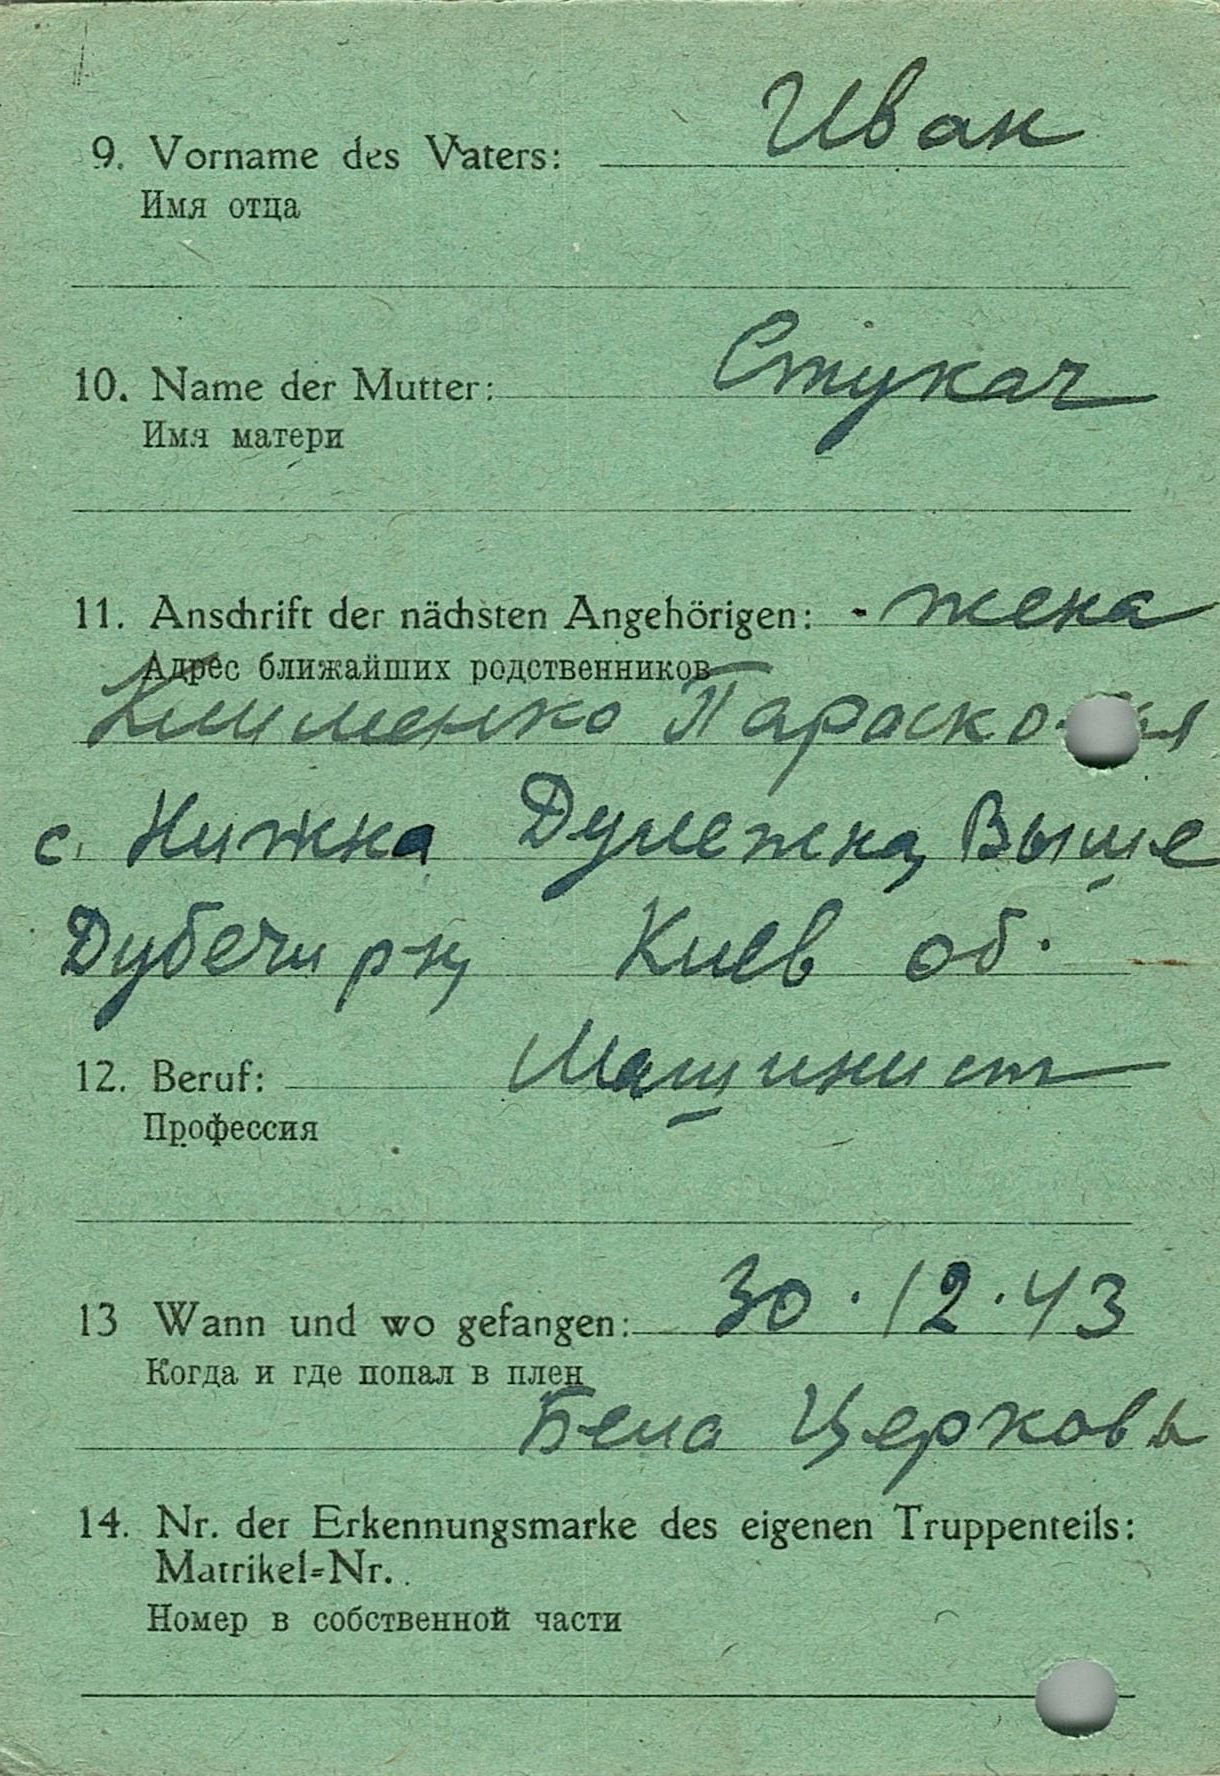 9. Vorname des Vaters: Иван
Имя отца
10. Name der Mutter: Стукач
Имя матери
11. Anschrift der nächsten Angehörigen: жена
Адрес ближайших родственников
Клименко
с. Нижна Думежка, Выше
Дубечи р-н, Киев об.
12. Beruf: Машинист
Профессия
13 Wann und wo gefangen: 30.12.43
Когда и где попал в плен
Бела Церковь
14. Nr. der Erkennungsmarke des eigenen Truppenteils:
Matrikel=Nr.
Номер в собственной части